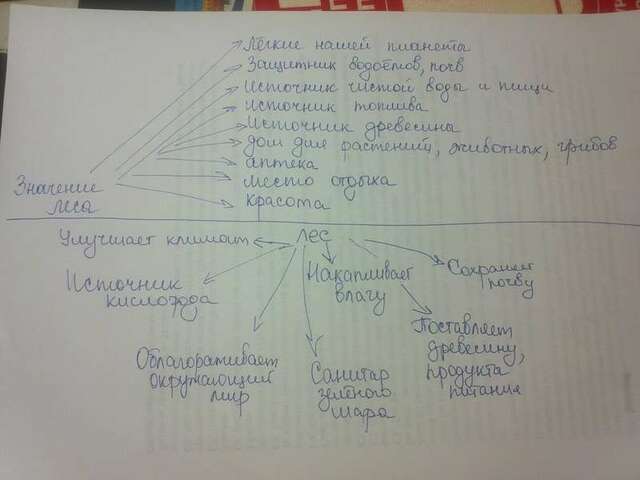 Лёгкие нашей планета
Защитник водоёмов, почв
Источник чистой воды и пищи
Источник топлива
Источник древесины
дом для растений, животных, грибов
аптека
место отдыха
красота
Значение
леса
лес
Улучшает климат
Источник
кислорода
Накапливает
влагу
Сохраняет
почву
Облагораживает
окружающий
мир
Санитар
земного
шара
Поставляет
древесину,
продукта
питания